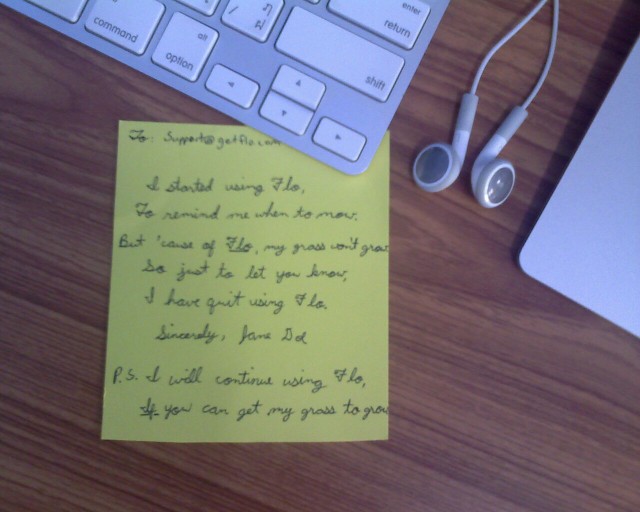 command
alt
option
enter
return
shift
To: Support@getflo.com
I started using Flo,
To remind me when to mow.
But 'cause of Flo, my grass won't grow
So just to let you know,
I have quit using Flo.
Sincerely, Jane Doe
P.S. I will continue using Flo,
If you can get my grass to grow